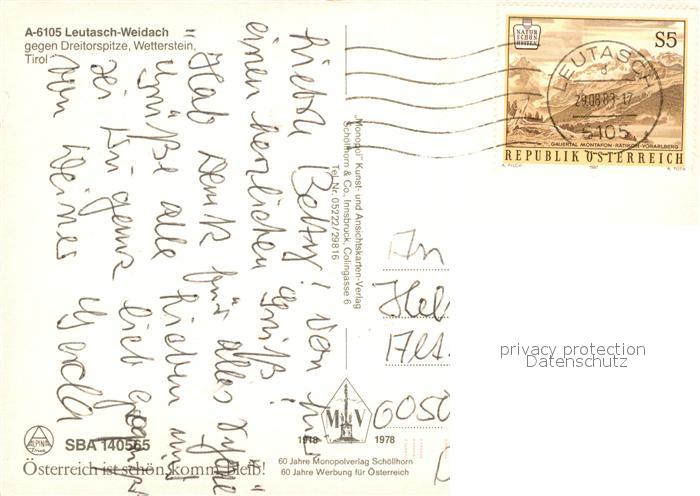 A-6105 Leutasch-Weidach
gegen Dreitorspitze, Wetterstein,
Tirol
NATUR
SCHÖN
HEITEN
S5
LEUTASCH
29.08.88-17
6105
GAUERTAL MONTAFON-RÄTIKON-VORARLBERG
REPUBLIK ÖSTERREICH
A. PILCH
1987
A. TÓTH
„Monopol" Kunst- und Ansichtskarten-Verlag
Schöllhorn & Co., Innsbruck, Colingasse 6
Tel. Nr. 05222/29816
Liebe Betty! Von mir
einen herzlichen Gruß!
Hab Dank für alles
Grüße alle Lieben und
sei Du ganz lieb
von Deiner
An
Hel
privacy protection
Datenschutz
ALPINA
SBA 140565
Österreich ist schön, komm bleib!
M V
1918 1978
60 Jahre Monopolverlag Schöllhorn
60 Jahre Werbung für Österreich